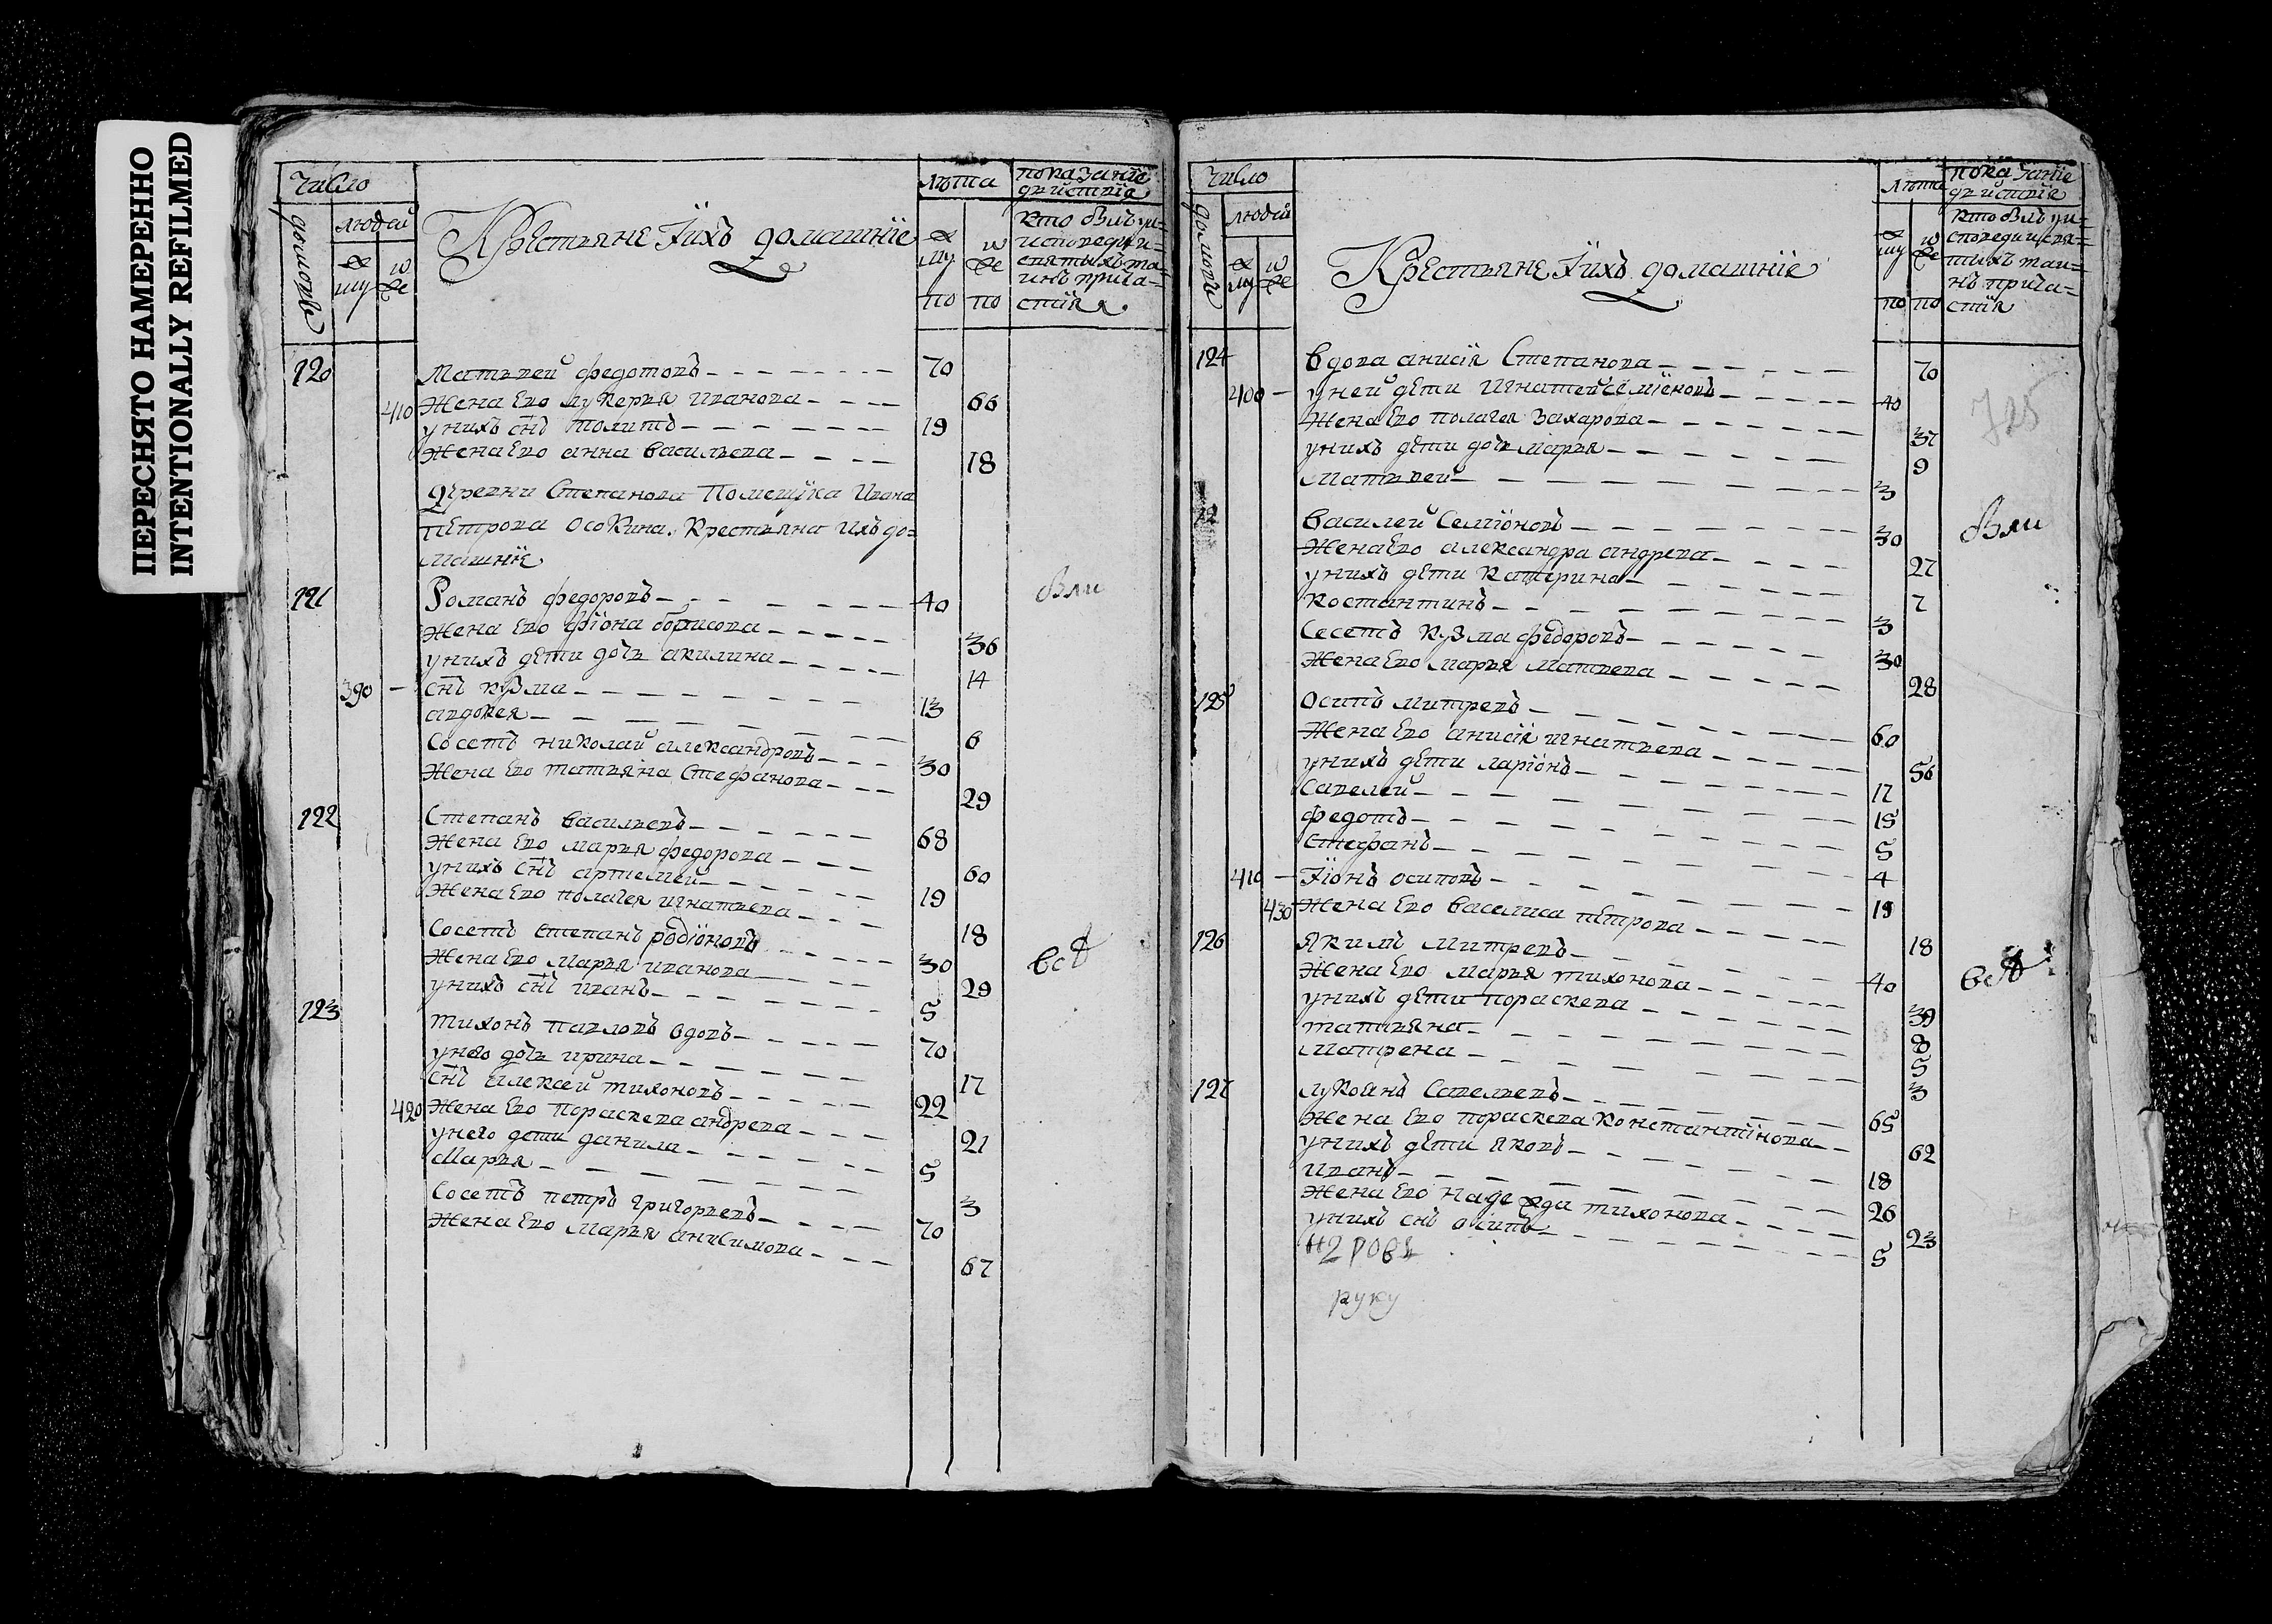 ПЕРЕСНЯТО НАМЕРЕННО
INTENTIONALLY REFILMED
число
домовъ
людей
му же
Крестьяне Їихъ домашнїе
лѣта
му же
по по
показанїе
дѣйствїя
кто былъ уи=
исповеди и
святыхъ та=
инъ прича=
стїя
120 Матьвей федотовъ 70
410 Жена Его лукерья иванова 66
у нихъ снъ политъ 19
Жена Его анна васильева 18
Деревни Степанова Помещїка Ивана
Петрова Осокина. Крестьяна Ихъ до=
машнїе
121 Романъ федоровъ 40
были
Жена Его фїона борисова 36
у нихъ дети дочь акилина 14
390 снъ кузма 13
авдокея 6
Сосетъ николай александровъ 30
Жена Его татьяна Стефанова 29
122 Степанъ васильевъ 68
Жена Его марья федорова 60
у нихъ снъ артемей 19
Жена Его полагея игнатьева 18
Сосетъ степанъ родїоновъ 30
всѣ
Жена Его марья иванова 29
у нихъ снъ иванъ 5
123 тихонъ павловъ вдовъ 70
у него дочь ирина 17
снъ алексей тихоновъ 22
420 Жена Его пораскева андрева 21
у него дети данила 5
Марья 3
Сосетъ петръ григорьевъ 70
Жена Его Марья анисимова 67
число
домовъ
людей
му же
Крестьяне Їихъ домашнїе
лѣта
му же
по по
показанїе
дѣйствїя
кто былъ уи=
споведи и свя=
тыхъ таи=
нъ прича=
стїя
124 вдова анисїя Степанова 70
400 у ней дети Игнатей семїоновъ 40
725
Жена Его полагея Захарова 37
у нихъ дети дочь марья 9
Матьвей 3
12
василей Семїоновъ 30
были
Жена Его александра андрева 27
у нихъ дети катерина 7
костантинъ 3
Сесетъ кузма федоровъ 30
Жена Его марья матвева 28
125 Осипъ митревъ 60
Жена Его анисїя игнатьева 56
у нихъ дети ларїонъ 17
Савелей 15
федотъ 5
Стефанъ 4
410 Їїонъ осиповъ 19
430 Жена Его василиса петрова 18
126 Якимъ митревъ 40
всѣ
Жена Его марья тихонова 39
у нихъ дети пораскева 8
татьяна 5
Матрена 3
127 лукоянъ Савельевъ 65
Жена Его пораскева константїнова 62
у нихъ дети яковъ 18
иванъ 26
Жена Его надежда тихонова 23
у нихъ снъ осипъ 5
руку